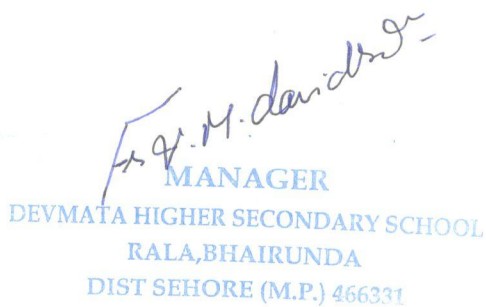 Fr. V. M. davidson
MANAGER
DEVMATA HIGHER SECONDARY SCHOOL
RALA,BHAIRUNDA
DIST SEHORE (M.P.) 466331